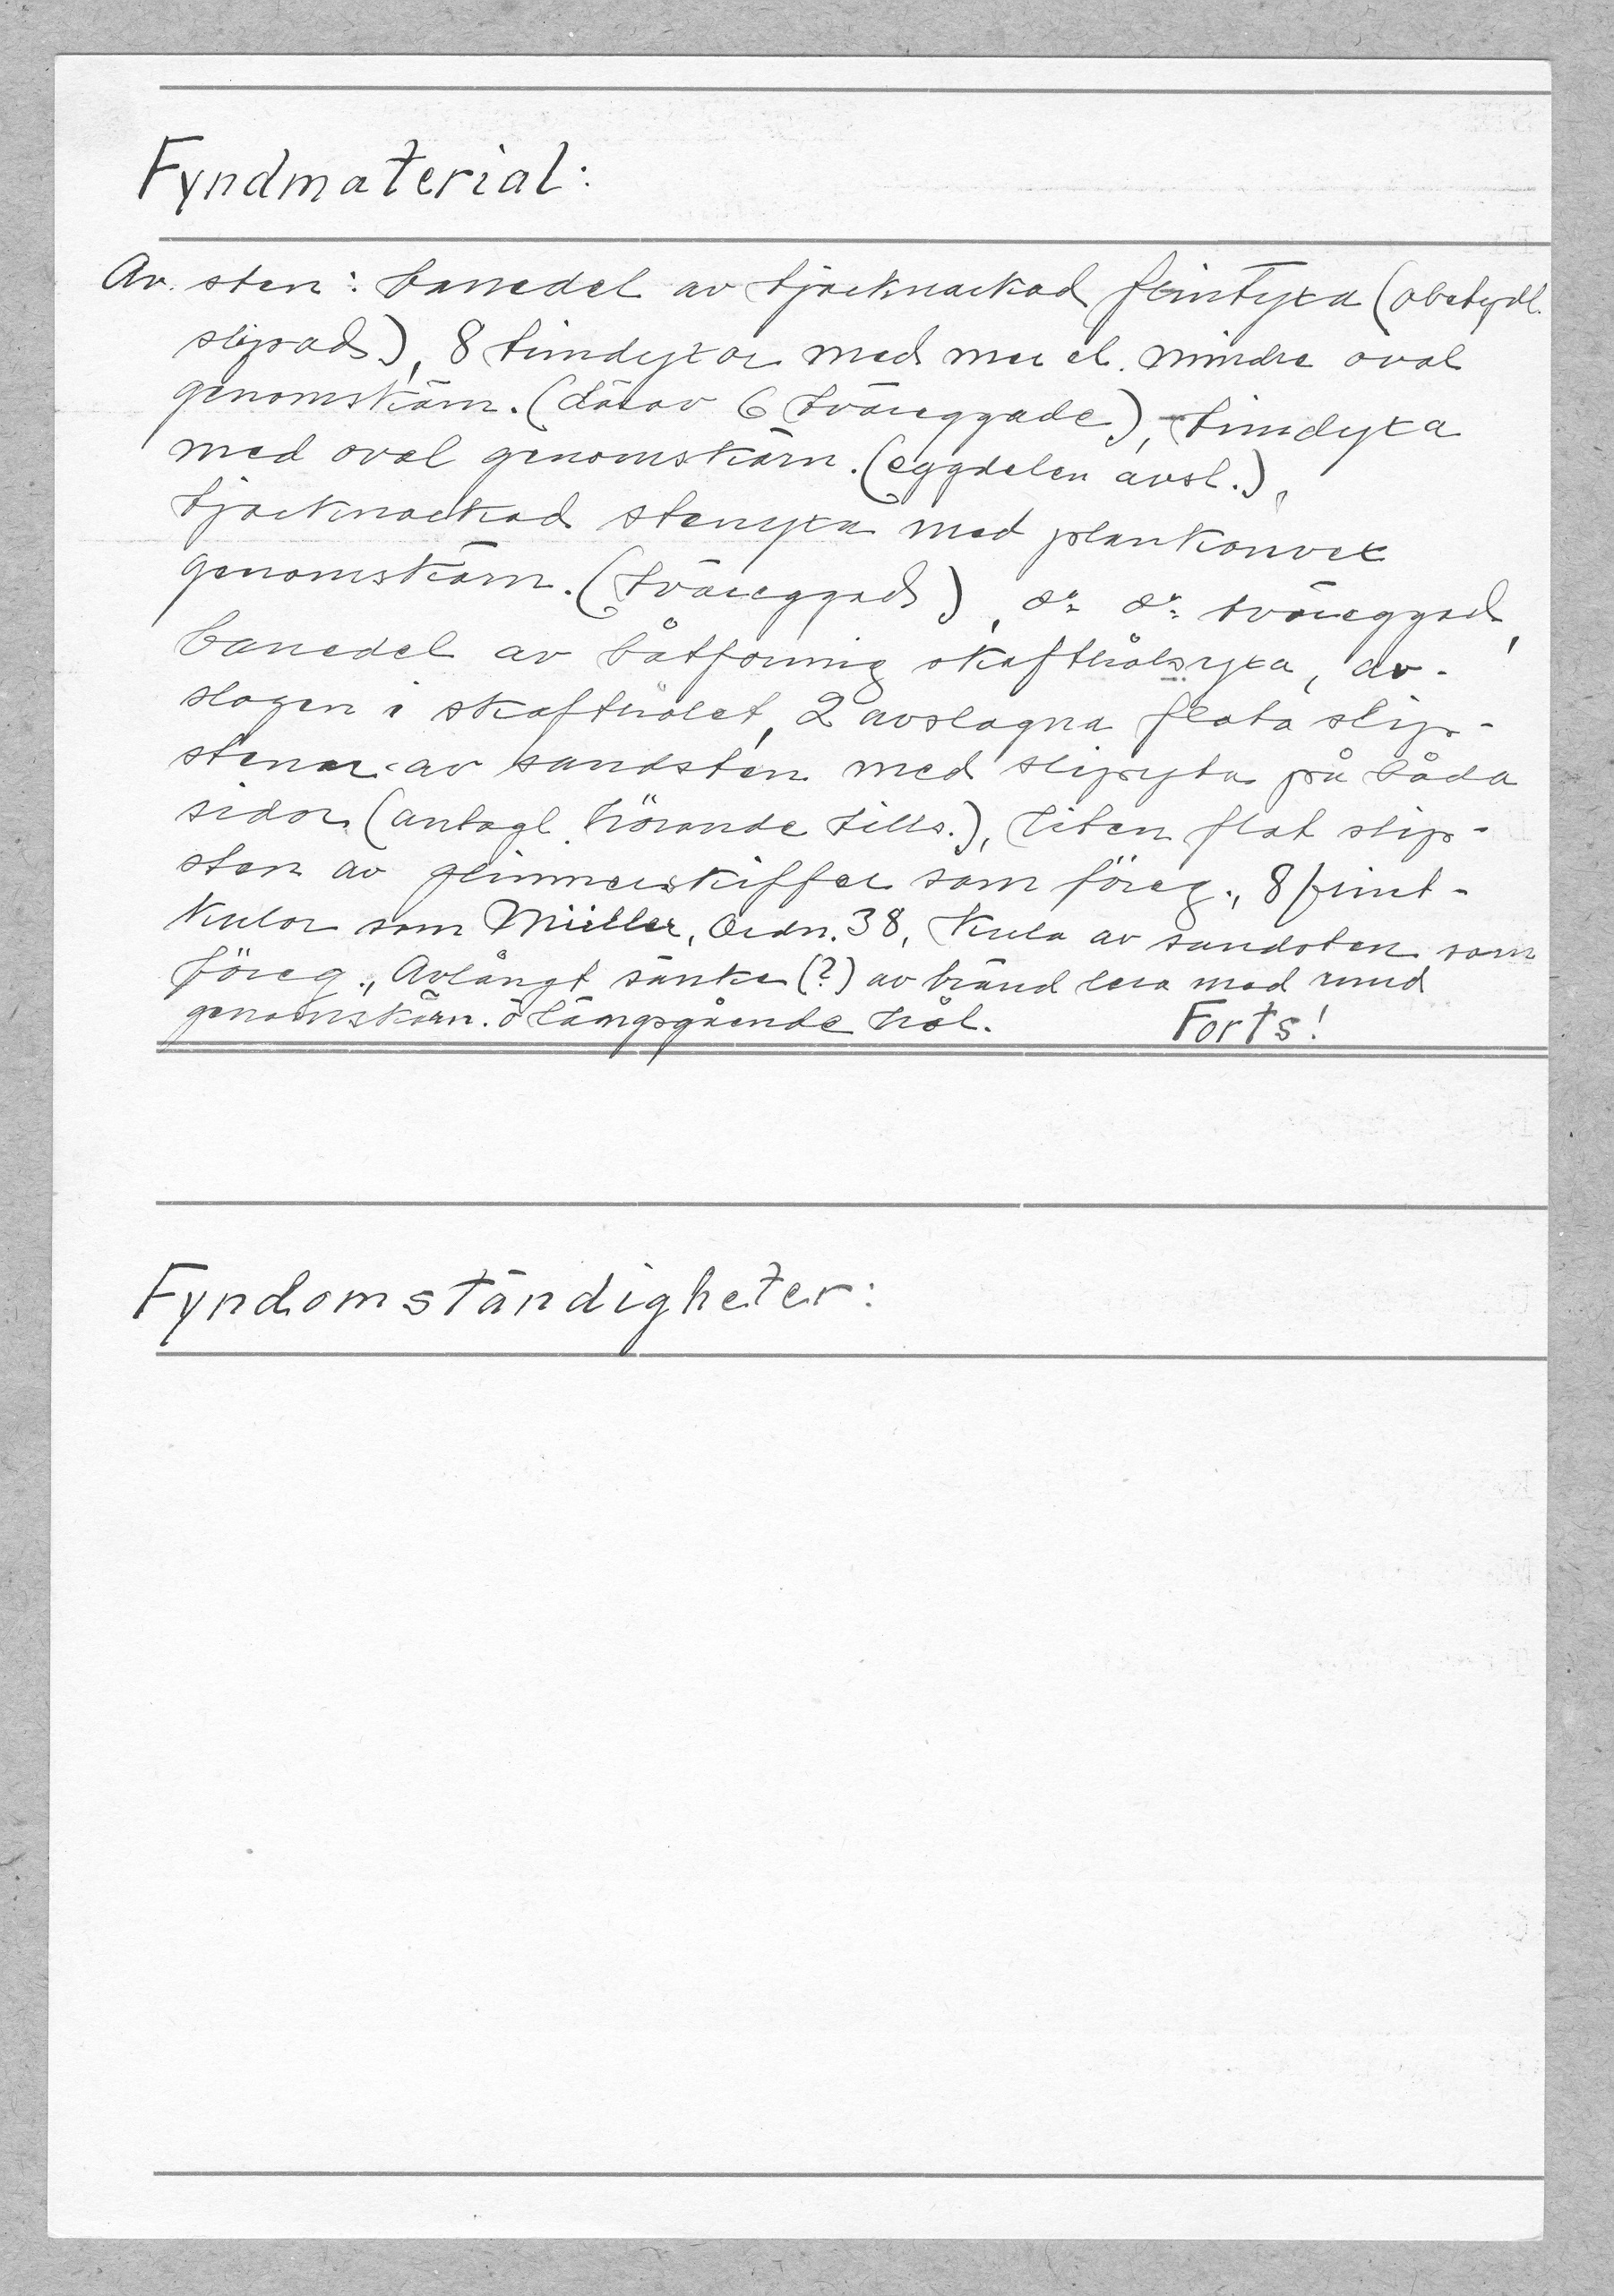 Fyndmaterial:
Av. sten: banedel av tjocknackad flintyxa (obetydl.
slipad), 8 trindyxor med mer el. mindre oval
genomskärn. (därav 6 tväreggade), trindyxa
med oval genomskärn. (eggdelen avsl.),
tjocknackad stenyxa med plankonvex
genomskärn. (tväreggad), d:o d:o tväreggad,
banedel av båtformig skafthålsyxa, av-
slagen i skafthålet, 2 avslagna flata slip-
stenar av sandsten med slipyta på båda
sidor (antagl. hörande tills.), liten flat slip-
sten av glimmerskiffer som föreg., 8 flint-
kulor som Müller, Ordn. 38, Kula av sandsten som
föreg., Avlångt sänke (?) av bränd lera med rund
genomskärn. o längsgående hål. Forts!
Fyndomständigheter: